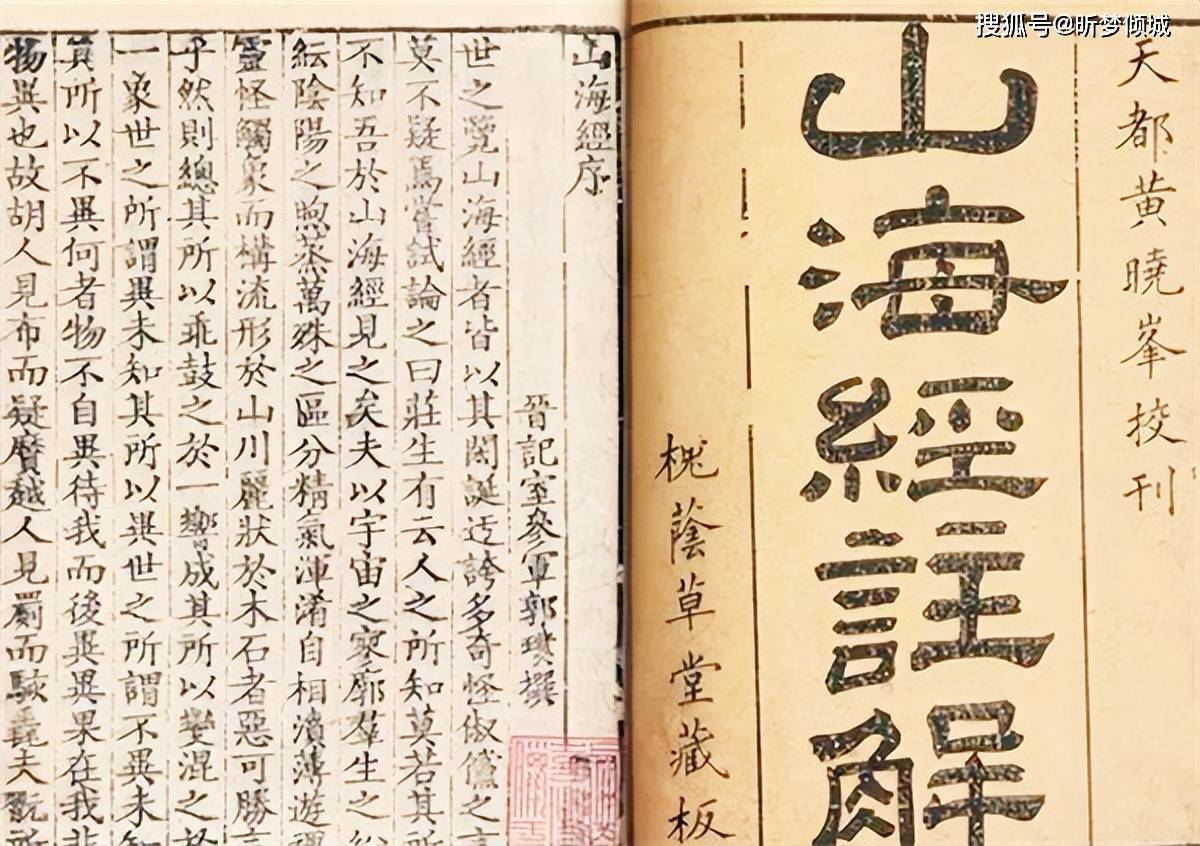 搜狐号@昕梦倾城
天都黄曉峯校刊
山海經註解
槐蔭草堂藏板
山海經序
晉記室參軍郭璞撰
世之覽山海經者皆以其閎誕迂誇多奇怪俶儻之言
莫不疑焉嘗試論之曰莊生有云人之所知莫若其所
不知吾於山海經見之矣夫以宇宙之寥廓羣生之紛
紜陰陽之煦蒸萬殊之區分精氣渾淆自相濆薄遊魂
靈怪觸象而構流形於山川麗狀於木石者惡可勝言
乎然則總其所以乖鼓之於一響成其所以變混之於
一象世之所謂異未知其所以異世之所謂不異未知
其所以不異何者物不自異待我而後異異果在我非
物異也故胡人見布而疑黂越人見罽而駭毳夫翫所